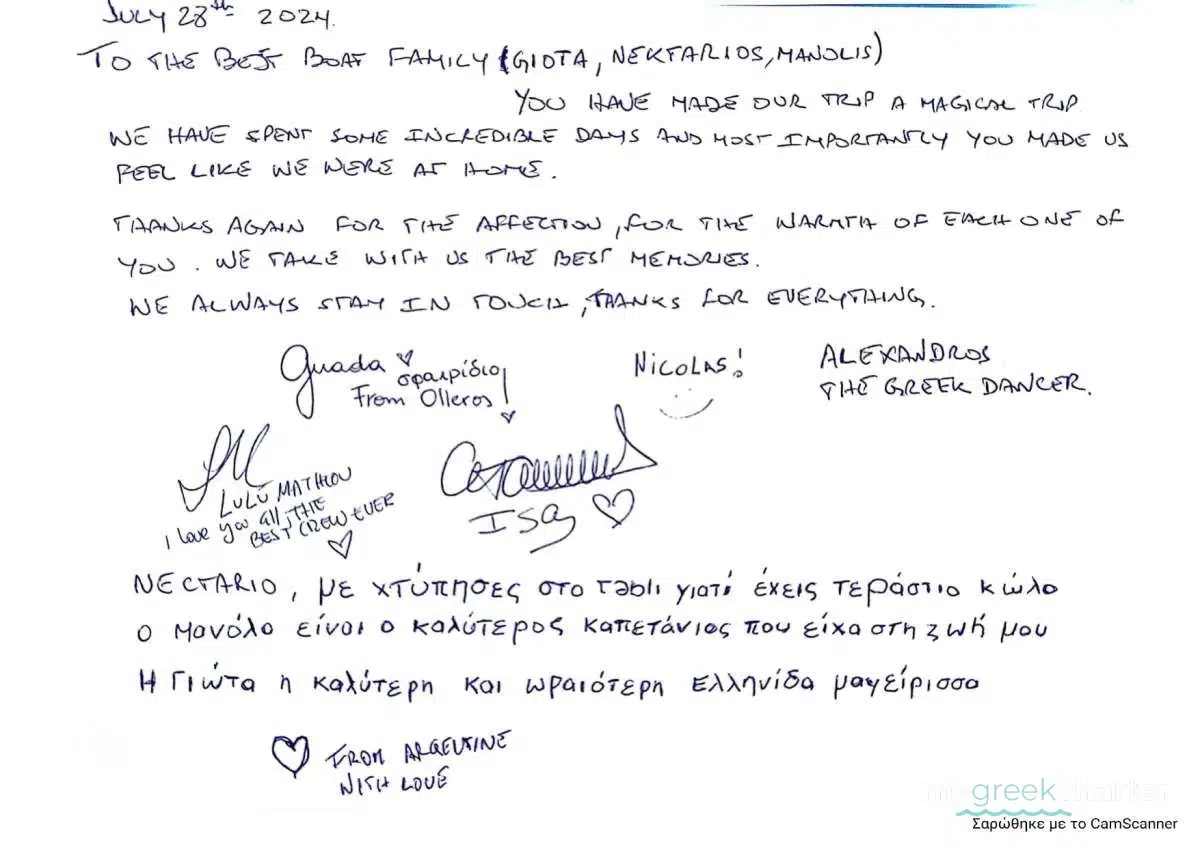 JULY 28th 2024.
TO THE BEST BOAT FAMILY (GIOTA, NEKTARIOS, MANOLIS)
YOU HAVE MADE OUR TRIP A MAGICAL TRIP
WE HAVE SPENT SOME INCREDIBLE DAYS AND MOST IMPORTANTLY YOU MADE US
FEEL LIKE WE WERE AT HOME.
THANKS AGAIN FOR THE AFFECTION, FOR THE WARMTH OF EACH ONE OF
YOU. WE TAKE WITH US THE BEST MEMORIES.
WE ALWAYS STAY IN TOUCH, THANKS FOR EVERYTHING.
Guada
σφαιρίδιο
From Olleros!
Nicolas!
ALEXANDROS
THE GREEK DANCER.
LULÚ MATHOV
I love you all, THE
BEST CREW EVER
Isa
NECTARIO, με χτύπησες στο τabli γιατί έχεις τεράστιο κώλο
Ο Μανόλο είναι ο καλύτερος καπετάνιος που είχα στη ζωή μου
Η Γιώτα η καλύτερη και ωραιότερη Ελληνίδα μαγείρισσα
FROM ARGENTINE
WITH LOVE
my greek charter
Σαρώθηκε με το CamScanner